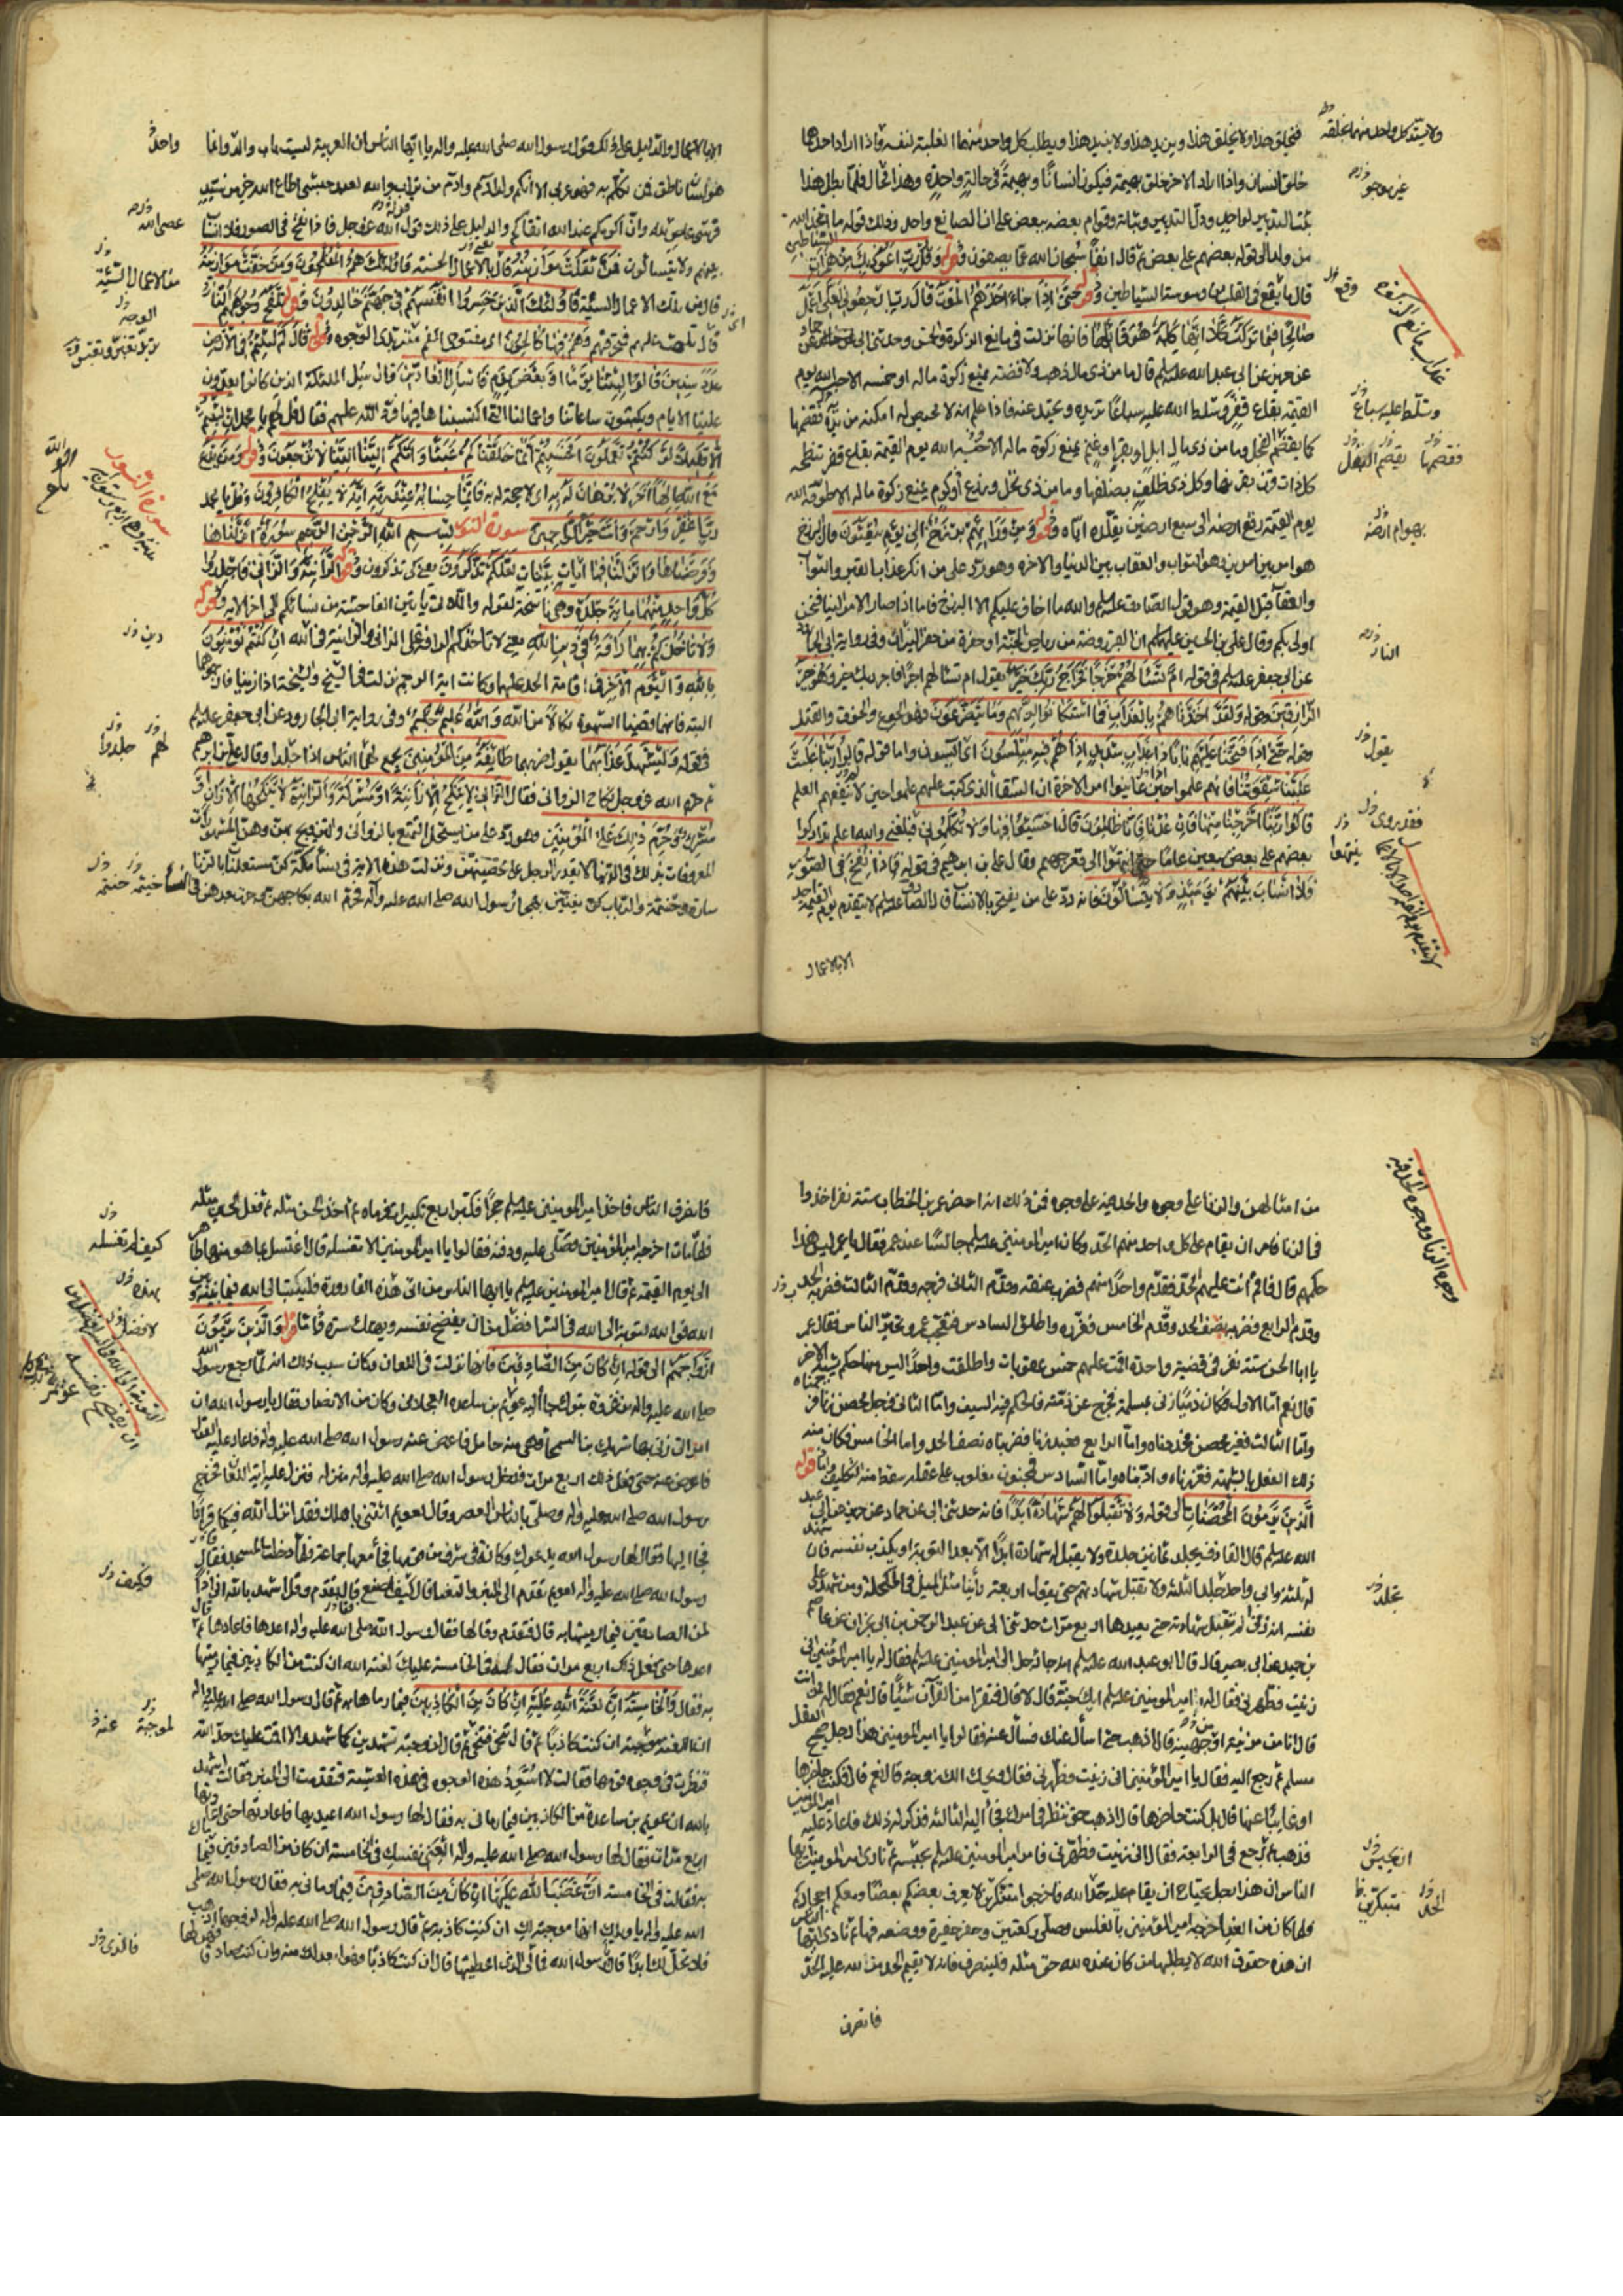 فيخلق هذا ولا يخلق هذا ويريد هذا ولا يريد هذا ويطلب كل واحد منهما الغلبة لنفسه واذا اراد احدهما
خلق انسان واذا اراد الاخر خلق بهيمة فيكون انسانا وبهيمة في حالة واحدة وهذا محال فلما بطل هذا
ثبت التدبير لواحد ودل التدبير وثباته وقوام بعضه ببعض على ان الصانع واحد وذلك قوله ما اتخذ الله
من ولد الى قوله بعضهم على بعض ثم قال انفا سبحان الله عما يصفون قوله وقل رب اعوذ بك من همزات الشياطين
قال ما يقع في القلب من وسوسة الشياطين قوله حتى اذا جاء احدهم الموت قال رب ارجعون لعلي اعمل
صالحا فيما تركت كلا انها كلمة هو قائلها فانها نزلت في مانع الزكوة والخمس وحدثني ابي عن خالد عن حماد
عن حريز عن ابي عبد الله عليه السلم قال ما من ذي مال ذهب ولا فضة يمنع زكوة ماله او خمسه الا حبسه الله يوم
القيمة بقاع قفر وسلط الله عليه سباعا تريده وتحيد عنه فاذا علم انه لا محيص له امكنه من يده فقضمها
كما يقضم الفجل وما من ذي مال ابل او بقر او غنم يمنع زكوة ماله الا حبسه الله يوم القيمة بقاع قفر تنطحه
كل ذات قرن بقرنها وكل ذي ظلف بظلفها وما من ذي نخل وزرع او كرم يمنع زكوة ماله الا طوقه الله
يوم القيمة ريع ارضه الى سبع ارضين يقلده اياه قوله ومن ورائهم برزخ الى يوم يبعثون قال البرزخ
هو امر بين امرين وهو الثواب والعقاب بين الدنيا والاخرة وهو رد على من انكر عذاب القبر والثواب
والعقاب قبل القيمة وهو قول الصادق عليه السلم والله ما اخاف عليكم الا البرزخ فاما اذا صار الامر الينا فنحن
اولى بكم وقال علي بن الحسين عليهما السلم ان القبر روضة من رياض الجنة او حفرة من حفر النيران وفي رواية ابي الجارود
عن ابي جعفر عليه السلم في قوله ام تسئلهم خرجا فخراج ربك خير يقول ام تسئلهم اجرا فاجر ربك خير وهو خير
الرازقين وقوله ولقد اخذناهم بالعذاب فما استكانوا لربهم وما يتضرعون فهو الجوع والخوف والقتل
وقوله حتى اذا فتحنا عليهم بابا ذا عذاب شديد اذا هم فيه مبلسون اي آيسون واما قوله قالوا ربنا غلبت
علينا شقوتنا فانهم علموا حين عاينوا امر الاخرة ان الشقا الذي كتب عليهم علموا حين لا ينفعهم العلم
قالوا ربنا اخرجنا منها فان عدنا فانا ظالمون قال اخسئوا فيها ولا تكلمون فبلغني والله اعلم تداركوا
بعضهم على بعض سبعين عاما حتى انتهوا الى قعر جهنم وقال علي بن ابراهيم في قوله فاذا نفخ في الصور
فلا انساب بينهم يومئذ ولا يتسائلون فانه رد على من يفتخر بالانساب قال الصادق عليه السلم لا يتقدم يوم القيمة احد
الا بالاعمال
ولا يستبد كل واحد منهما بخلقه
غير موجود
وقع
عذاب مانع الزكوة
وسلط عليه سباع
فقضمها
بهوام ارضه
النار
يقول
الا بالاعمال والدليل على ذلك قول رسول الله صلى الله عليه واله يا ايها الناس ان العربية ليست باب والد وانما
هو لسان ناطق فمن تكلم به فهو عربي الا انكم ولد ادم وادم من تراب والله لعبد حبشي اطاع الله خير من سيد
قرشي عاص لله وان اكرمكم عند الله اتقاكم والدليل على ذلك قول الله عز وجل فاذا نفخ في الصور فلا انساب
بينهم ولا يتسائلون فمن ثقلت موازينه قال بالاعمال الحسنة فاولئك هم المفلحون ومن خفت موازينه
قال من تلك الاعمال السيئة فاولئك الذين خسروا انفسهم في جهنم خالدون قوله تلفح وجوههم النار
قال تلهب عليهم فتحرقهم وهم فيها كالحون اي مفتوحي الفم متربدي الوجوه قوله قال كم لبثتم في الارض
عدد سنين قالوا لبثنا يوما او بعض يوم فاسأل العادين قال سل الملئكة الذين كانوا يعدون
علينا الايام ويكتبون ساعاتنا واعمالنا التي اكتسبناها فيها فرد الله عليهم فقال قل لهم يا محمد ان لبثتم
الا قليلا لو كنتم تعلمون افحسبتم انما خلقناكم عبثا وانكم الينا لا ترجعون قوله ومن يدع
مع الله الها اخر لا برهان له به اي لا حجة له به فانما حسابه عند ربه انه لا يفلح الكافرون وقل يا محمد
رب اغفر وارحم وانت خير الراحمين سورة النور بسم الله الرحمن الرحيم سورة انزلناها
وفرضناها وانزلنا فيها ايات بينات لعلكم تذكرون يعني كي تذكرون قوله الزانية والزاني فاجلدوا
كل واحد منهما ماية جلدة وهي ناسخة لقوله واللاتي ياتين الفاحشة من نسائكم الى اخر الاية قوله
ولا تاخذكم بهما رافة في دين الله يعني لا تاخذكم الرافة على الزاني والزانية في الله ان كنتم تؤمنون
بالله واليوم الاخر في اقامة الحد عليهما وكانت اية الرجم نزلت في الشيخ والشيخة اذا زنيا فارجموهما
البتة فانهما قضيا الشهوة نكالا من الله والله عليم حكيم وفي رواية ابي الجارود عن ابي جعفر عليه السلم
في قوله وليشهد عذابهما يقول ضربهما طائفة من المؤمنين يجمع لهما الناس اذا جلدا وقال علي بن ابرهيم
ثم حرم الله عز وجل نكاح الزواني فقال الزاني لا ينكح الا زانية او مشركة والزانية لا ينكحها الا زان او
مشرك وحرم ذلك على المؤمنين وهو رد على من يستحل التمتع بالزواني والتزويج بهن وهن المشهورات
المعروفات بذلك في الدنيا لا يقدر الرجل على تحصينهن ونزلت هذه الاية في نساء مكة كن مستعلنات بالزنا
سارة وحنتمة والرباب كن يغنين بهجاء رسول الله صلى الله عليه وآله فحرم الله نكاحهن وجرت بعدهن في النساء
واحد
عصى الله
من الاعمال السيئة
الوجه
سورة النور
دين
لهم جلدوا
من امثالهن والزنا على وجوه والحد فيه على وجوه فمن ذلك انه احضر عمر بن الخطاب ستة نفر اخذوا
في الزنا فامر ان يقام على كل واحد منهم الحد وكان امير المؤمنين عليه السلم جالسا عند عمر فقال يا عمر ليس هذا
حكمهم قال فاقم انت عليهم الحد فقدم واحدا منهم فضرب عنقه وقدم الثاني فرجمه وقدم الثالث فضربه الحد
وقدم الرابع فضربه نصف الحد وقدم الخامس فعزره واطلق السادس فتعجب عمر وتحير الناس فقال عمر
يا ابا الحسن ستة نفر في قضية واحدة اقمت عليهم خمس عقوبات واطلقت واحدا ليس منها حكم يشبه الاخر
قال نعم اما الاول فكان ذميا زنى بمسلمة فخرج عن ذمته فالحكم فيه السيف واما الثاني فرجل محصن زنا فرجمناه
واما الثالث فغير محصن فحددناه واما الرابع فعبد زنا فضربناه نصف الحد واما الخامس فكان منه
ذلك الفعل بالشبهة فعزرناه وادبناه واما السادس فمجنون مغلوب على عقله سقط منه التكليف واما قوله
الذين يرمون المحصنات الى قوله ولا تقبلوا لهم شهادة ابدا فانه حدثني ابي عن حماد عن حريز عن ابي عبد
الله عليه السلم قال القاذف يجلد ثمانين جلدة ولا يقبل له شهادة ابدا الا بعد التوبة او يكذب نفسه فان شهد
له ثلثة وابى واحد جلد الثلثة ولا تقبل شهادتهم حتى يقول اربعة رأينا مثل الميل في المكحلة ومن شهد على
نفسه انه زنى لم تقبل شهادته حتى يعيدها اربع مرات حدثني ابي عن عبد الرحمن بن ابي نجران عن عاصم
بن حميد عن ابي بصير قال قال ابو عبد الله عليه السلم انه جاء رجل الى امير المؤمنين عليه السلم فقال له يا امير المؤمنين اني
زنيت فطهرني فقال له امير المؤمنين عليه السلم ابك جنة قال لا قال فتقرا من القرآن شيئا قال نعم فقال له ممن انت
قال انا من مزينة او جهينة قال اذهب حتى اسأل عنك فسأل عنه فقالوا يا امير المؤمنين هذا رجل صحيح العقل
مسلم ثم رجع اليه فقال يا امير المؤمنين اني زنيت فطهرني فقال ويحك الك زوجة قال نعم قال فكنت حاضرها
او غايبا عنها قال بل كنت حاضرها قال اذهب حتى ننظر في امرك فجاء اليه الثالثة فذكر له ذلك فاعاد عليه امير المؤمنين
فذهب ثم رجع في الرابعة فقال اني زنيت فطهرني فامر امير المؤمنين عليه السلم بحبسه ثم نادى امير المؤمنين ايها
الناس ان هذا رجل يحتاج ان يقام عليه حد الله فاخرجوا متنكرين لا يعرف بعضكم بعضا ومعكم احجاركم
فلما كان من الغد اخرجه امير المؤمنين بالغلس وصلى ركعتين وحفر حفيرة ووضعه فيها ثم نادى ايها الناس
ان هذه حقوق الله لا يطلبها من كان عنده لله حق مثله فلينصرف فانه لا يقيم الحد من لله عليه الحد
فانصرف
وجوه الزنا ووجوه الحد فيه
تجلد
الحد متنكرين
فانصرف الناس فاخذ امير المؤمنين عليه السلم حجرا فكبر اربع تكبيرات فرماه ثم اخذ الحسن مثله ثم فعل الحسين مثله
فلما مات اخرجه امير المؤمنين وصلى عليه ودفنه فقالوا يا امير المؤمنين الا تغسله قال اغتسل بما هو منها طاهر
الى يوم القيمة ثم قال امير المؤمنين عليه السلم يا ايها الناس من اتى هذه القاذورة فليتب الى الله فيما بينه وبين
الله فوالله لتوبة الى الله في السر افضل من ان يفضح نفسه ويهتك ستره واما قوله والذين يرمون
ازواجهم الى قوله ان كان من الصادقين فانها نزلت في اللعان وكان سبب ذلك انه لما رجع رسول الله
صلى الله عليه واله من غزوة تبوك جاء اليه عويمر بن ساعدة العجلاني وكان من الانصار فقال يا رسول الله ان
امراتي زنى بها شريك بن السمحا وهي منه حامل فاعرض عنه رسول الله صلى الله عليه واله فاعاد عليه القول
فاعرض عنه حتى فعل ذلك اربع مرات فدخل رسول الله صلى الله عليه واله منزله فنزل عليه اية اللعان فخرج
رسول الله صلى الله عليه واله وصلى بالناس العصر وقال لعويمر ائتني باهلك فقد انزل الله فيكما قرآنا
فجاء اليها فقال لها رسول الله يدعوك وكانت في شرف من قومها فجاء معها جماعة فلما دخلت المسجد قال
رسول الله صلى الله عليه واله لعويمر تقدم الى المنبر والتعنا قال كيف اصنع قال تقدم وقل اشهد بالله اني اذا
لمن الصادقين فيما رميتها به قال فتقدم وقالها فقال رسول الله صلى الله عليه واله اعدها فاعادها ثم قال
اعدها حتى فعل ذلك اربع مرات فقال له في الخامسة عليك لعنة الله ان كنت من الكاذبين فيما رميتها
به فقال والخامسة ان لعنة الله عليه ان كان من الكاذبين فيما رماها به ثم قال رسول الله صلى الله عليه واله
ان اللعنة موجبة ان كنت كاذبا ثم قال تنح فتنحى ثم قال لزوجته تشهدين كما شهد والا اقمت عليك حد الله
فنظرت في وجوه قومها فقالت لا اسود هذه الوجوه في هذه العشية فتقدمت الى المنبر فقالت اشهد
بالله ان عويمر بن ساعدة من الكاذبين فيما رماني به فقال لها رسول الله اعيديها فاعادتها حتى اعادتها
اربع مرات فقال لها رسول الله صلى الله عليه واله العني نفسك في الخامسة ان كان من الصادقين فيما رماك
به فقالت في الخامسة ان غضب الله عليها ان كان من الصادقين فيما رماني به فقال رسول الله صلى
الله عليه واله ويلك انها موجبة لك ان كنت كاذبة ثم قال رسول الله صلى الله عليه واله لزوجها اذهب
فلا تحل لك ابدا قال يا رسول الله فمالي الذي اعطيتها قال ان كنت كاذبا فهو ابعد لك منه وان كنت صادقا
كيف لم تغسله
بهذه
وكيف
لموجبة
فالذي